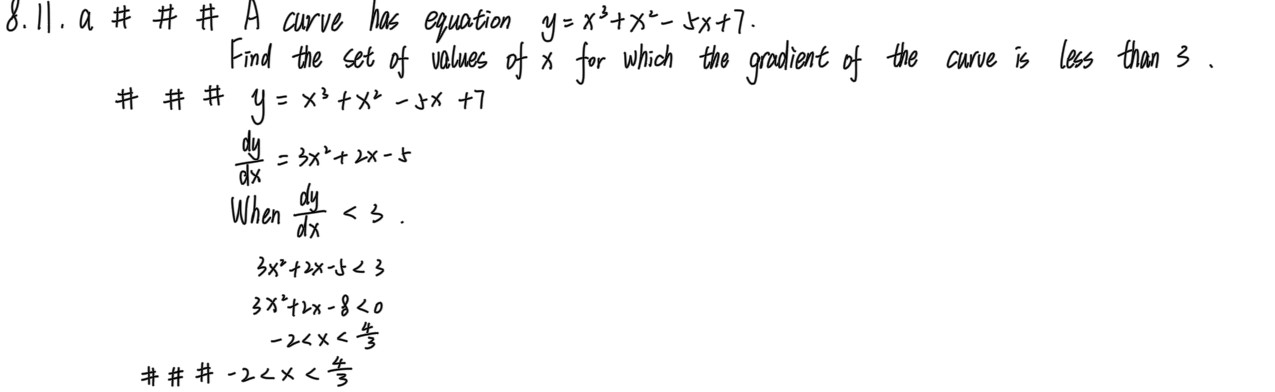 8.11. a # # # A curve has equation y = x³ + x² - 5x + 7.
Find the set of values of x for which the gradient of the curve is less than 3 .
# # # y = x³ + x² - 5x + 7
dy/dx = 3x² + 2x - 5
When dy/dx < 3 .
3x² + 2x - 5 < 3
3x² + 2x - 8 < 0
-2 < x < 4/3
# # # -2 < x < 4/3